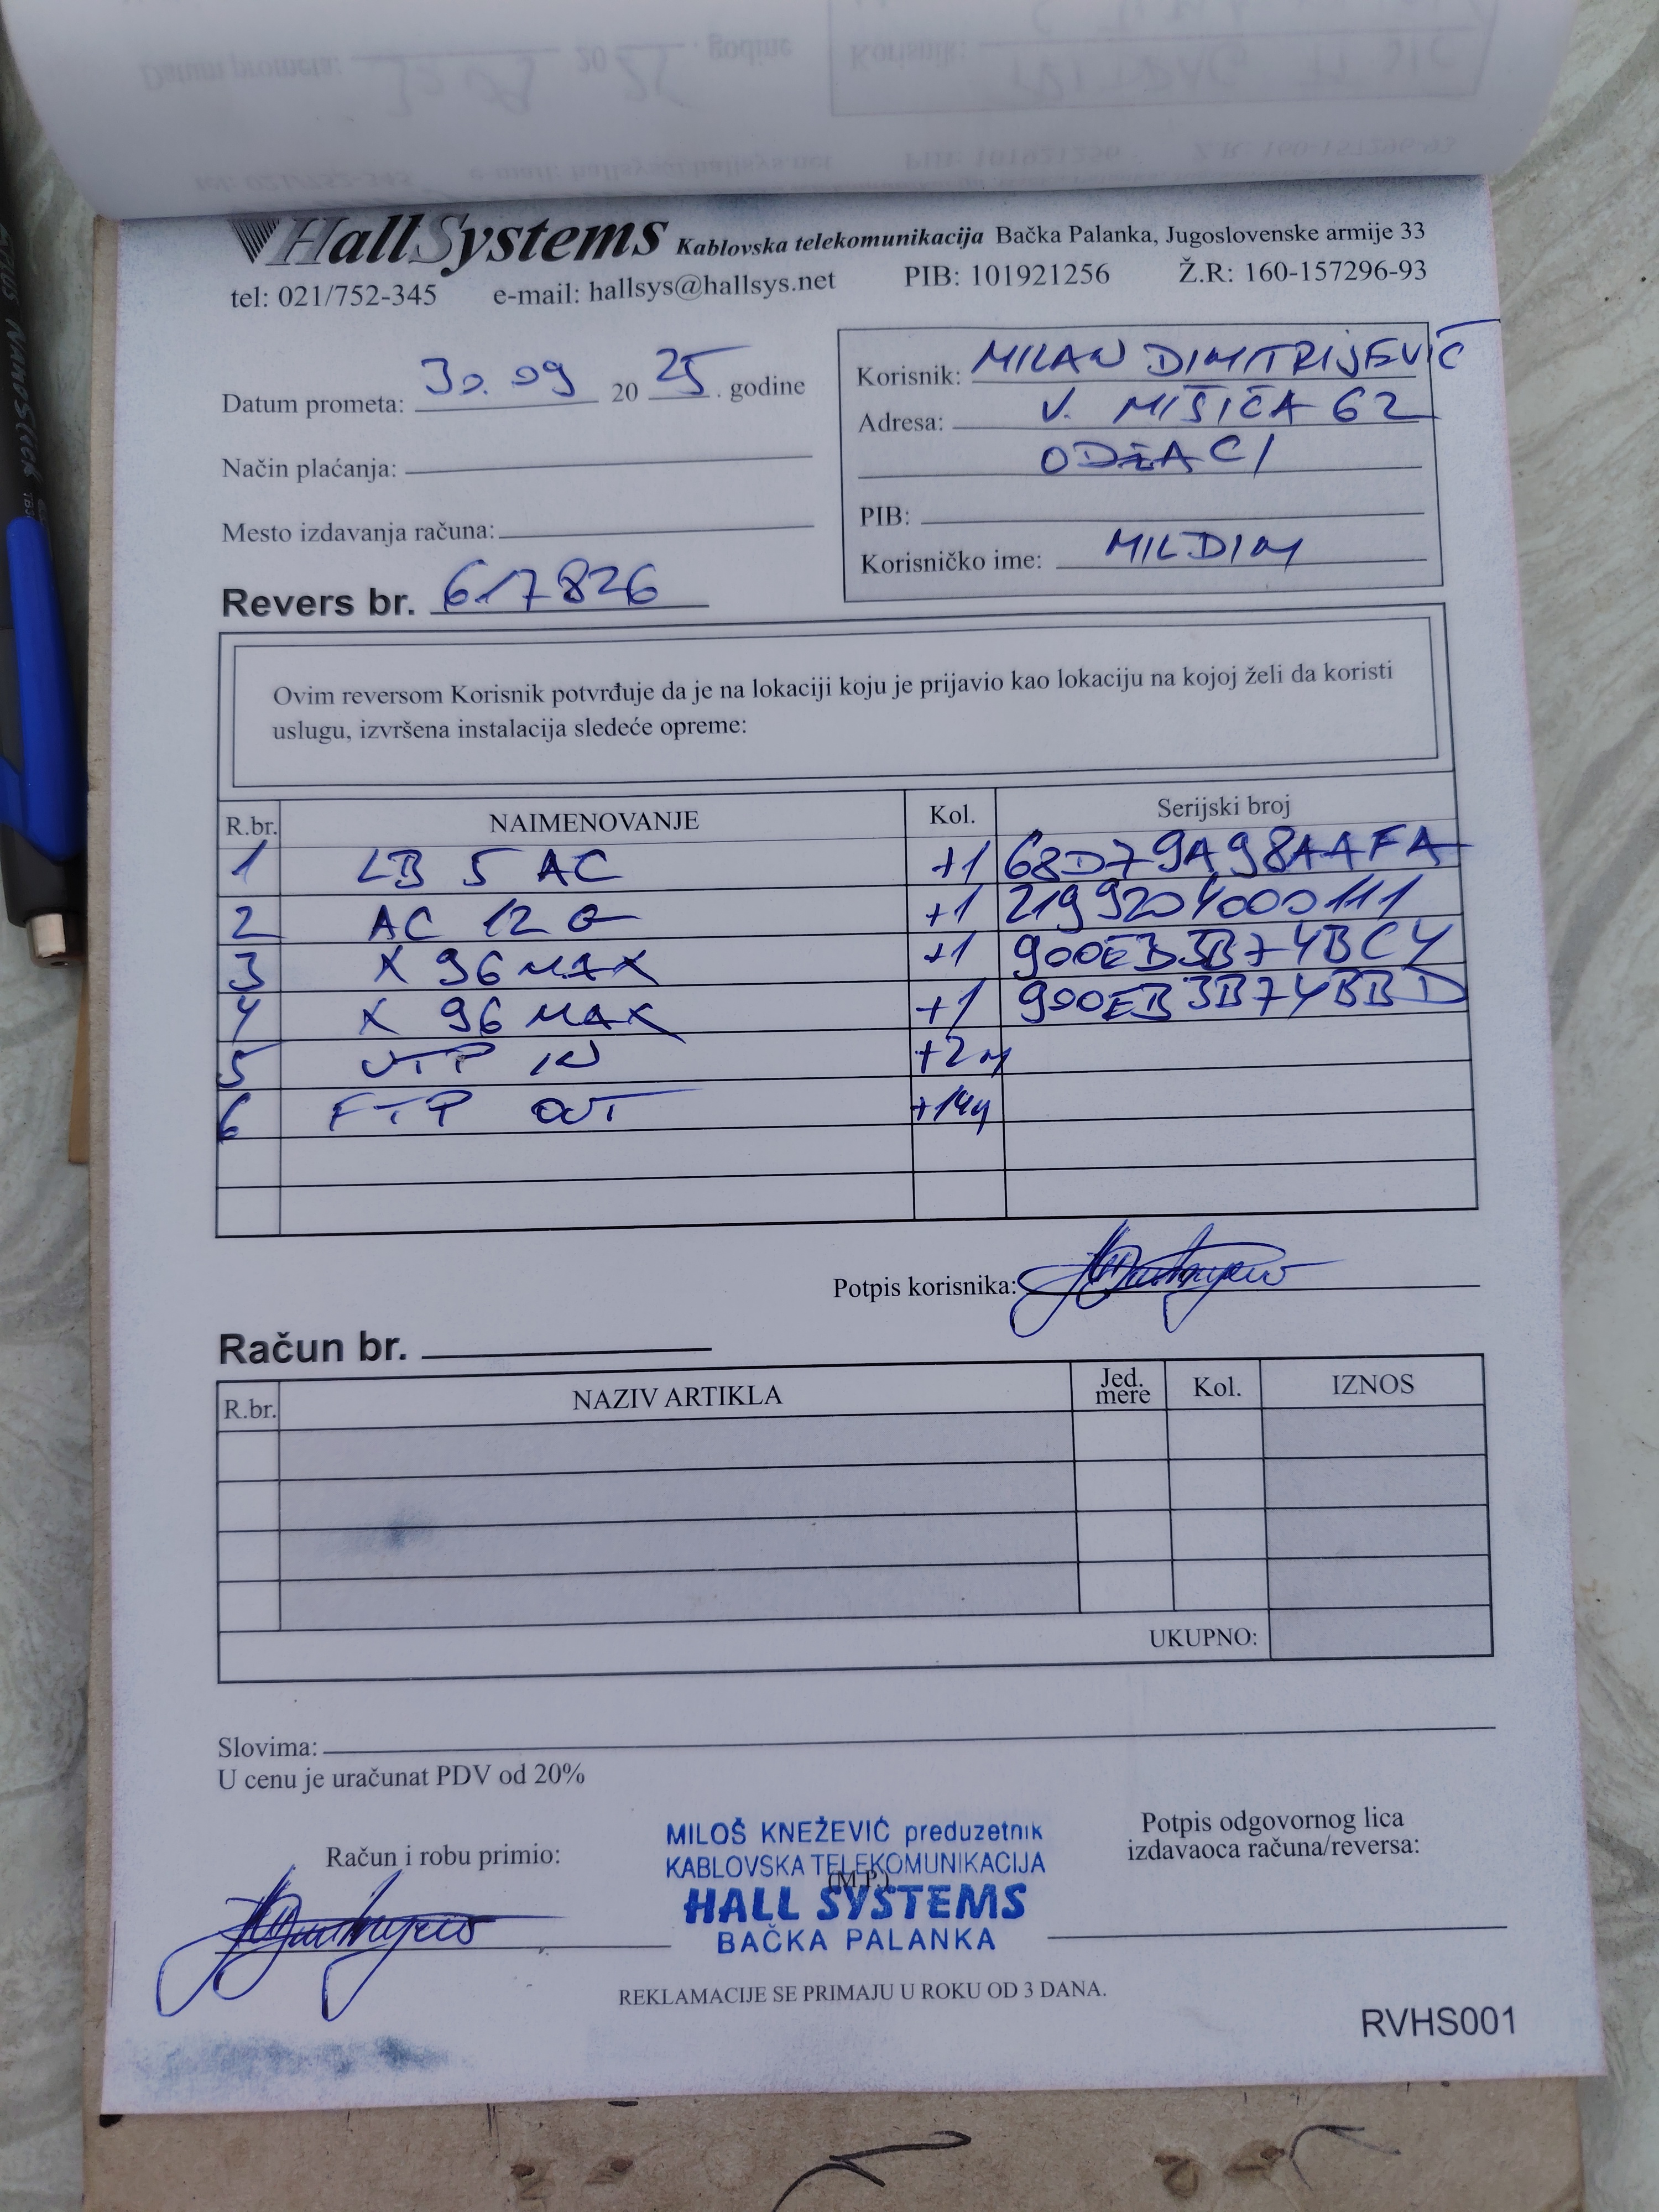 HallSystems Kablovska telekomunikacija Bačka Palanka, Jugoslovenske armije 33
tel: 021/752-345 e-mail: hallsys@hallsys.net PIB: 101921256 Ž.R: 160-157296-93
Datum prometa: 30.09 2025. godine
Način plaćanja:
Mesto izdavanja računa:
Korisnik: MILAN DIMITRIJEVIĆ
Adresa: V. MIŠIĆA 62
ODŽACI
PIB:
Korisničko ime: MILDIM
Revers br. 617826
Ovim reversom Korisnik potvrđuje da je na lokaciji koju je prijavio kao lokaciju na kojoj želi da koristi
uslugu, izvršena instalacija sledeće opreme:
R.br. NAIMENOVANJE Kol. Serijski broj
1 LB 5 AC +1 68D79A98AAFA
2 AC 12 G +1 2199204000111
3 X 96 MAX +1 900EB3B74BC4
4 X 96 MAX +1 900EB3B74BBD
5 UTP IN +2m
6 FTP OUT +14m
Potpis korisnika:
Račun br.
R.br. NAZIV ARTIKLA Jed. mere Kol. IZNOS
UKUPNO:
Slovima:
U cenu je uračunat PDV od 20%
Račun i robu primio:
MILOŠ KNEŽEVIĆ preduzetnik
KABLOVSKA TELEKOMUNIKACIJA
(M.P.)
HALL SYSTEMS
BAČKA PALANKA
Potpis odgovornog lica
izdavaoca računa/reversa:
REKLAMACIJE SE PRIMAJU U ROKU OD 3 DANA.
RVHS001